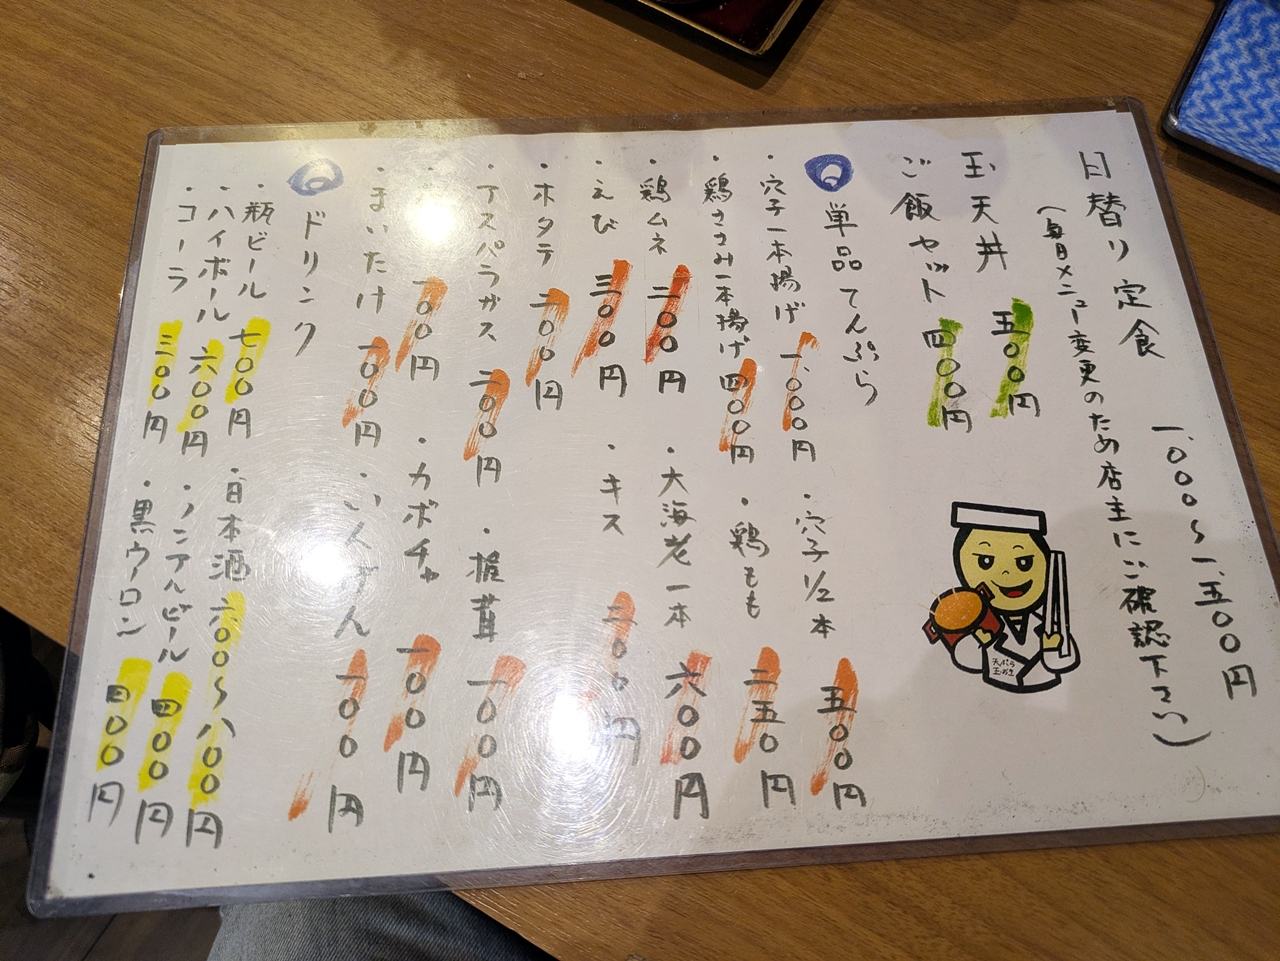 日替り定食
一、〇〇〇〜一、五〇〇円
(毎日メニュー変更のため店主にご確認下さい)
玉天丼 五〇〇円
ご飯セット 四〇〇円
単品てんぷら
・穴子一本揚げ 一、〇〇〇円
・穴子1/2本 五〇〇円
・鶏ささみ一本揚げ 四〇〇円
・鶏もも 二五〇円
・鶏ムネ 二〇〇円
・大海老一本 六〇〇円
・えび 三〇〇円
・キス 二〇〇円
・ホタテ 二〇〇円
・アスパラガス 二〇〇円
・椎茸 一〇〇円
一〇〇円
・カボチャ 一〇〇円
・まいたけ 一〇〇円
・いんげん 一〇〇円
ドリンク
・瓶ビール 七〇〇円
・日本酒 六〇〇〜八〇〇円
・ハイボール 六〇〇円
・ノンアルビール 四〇〇円
・コーラ 三〇〇円
・黒ウーロン 四〇〇円
天ぷら